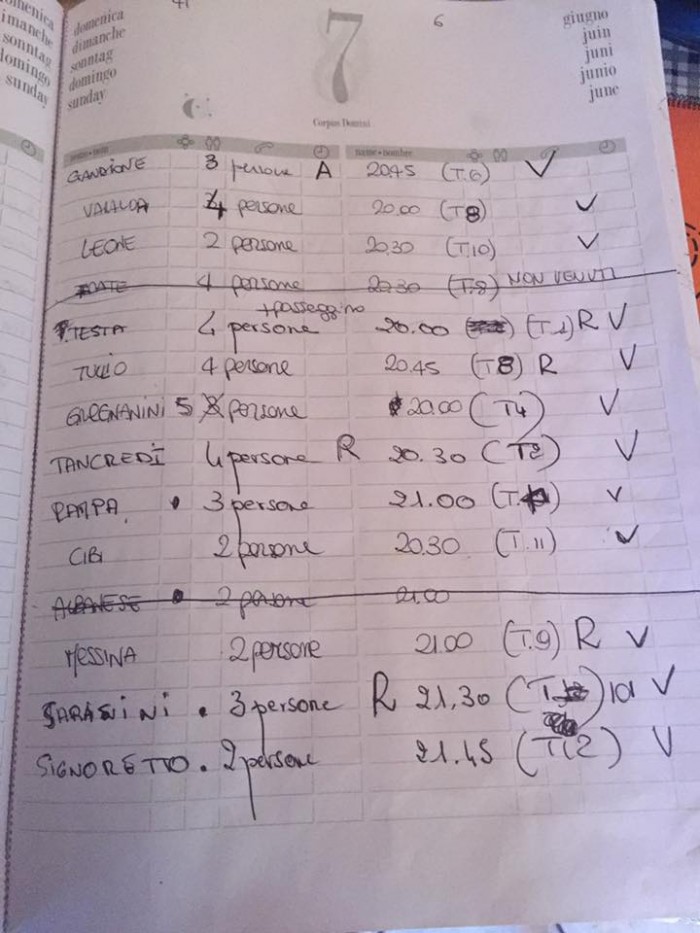 domenica
imanche
sonntag
domingo
sunday
domenica
dimanche
sonntag
domingo
sunday
7
6
giugno
juin
juni
junio
june
Corpus Domini
name • nombre
3 persone A 20.45 (T.6) V
4 persone 20.00 (T8) V
LEONE 2 persone 20.30 (T.10) V
4 persone 20.30 (T.8) NON VENUTI
+passeggino
TESTA 4 persone 20.00 (T.1) R V
TULLIO 4 persone 20.45 (T8) R V
GUEGNANINI 5 persone 20.00 (T4) V
TANCREDI 4 persone R 20.30 (T2) V
RAMPA 3 persone 21.00 V
CIBI 2 persone 20.30 (T.11) V
ALBANESE 2 persone 21.00
MESSINA 2 persone 21.00 (T.9) R V
SARASINI 3 persone R 21,30 V
SIGNORETTO . 2 persone 21.45 (T12) V